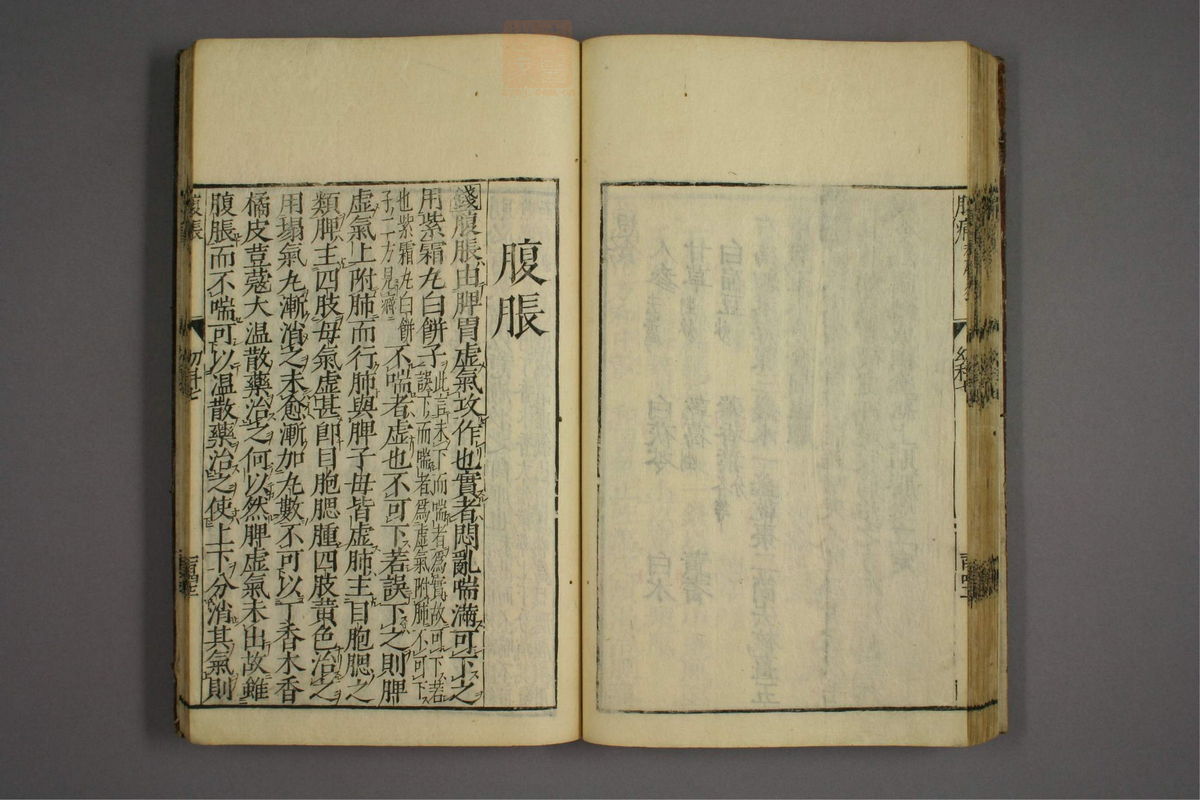 腹脹
錢腹脹由脾胃虛氣攻作也實者悶亂喘滿可下之
用紫霜丸白餅子此言未下而喘者為實故可下若
誤下而喘者為虛氣附肺不可下
也紫霜丸白餅
子二方見癖
不喘者虛也不可下若誤下之則脾
虛氣上附肺而行肺與脾子母皆虛肺主目胞腮之
類脾主四肢母氣虛甚卽目胞腮腫四肢黃色治之
用塌氣丸漸消之未愈漸加丸數不可以丁香木香
橘皮荳蔻大温散藥治之何以然脾虛氣未出故雖
腹脹而不喘可以温散藥治之使上下分消其氣則
腹脹